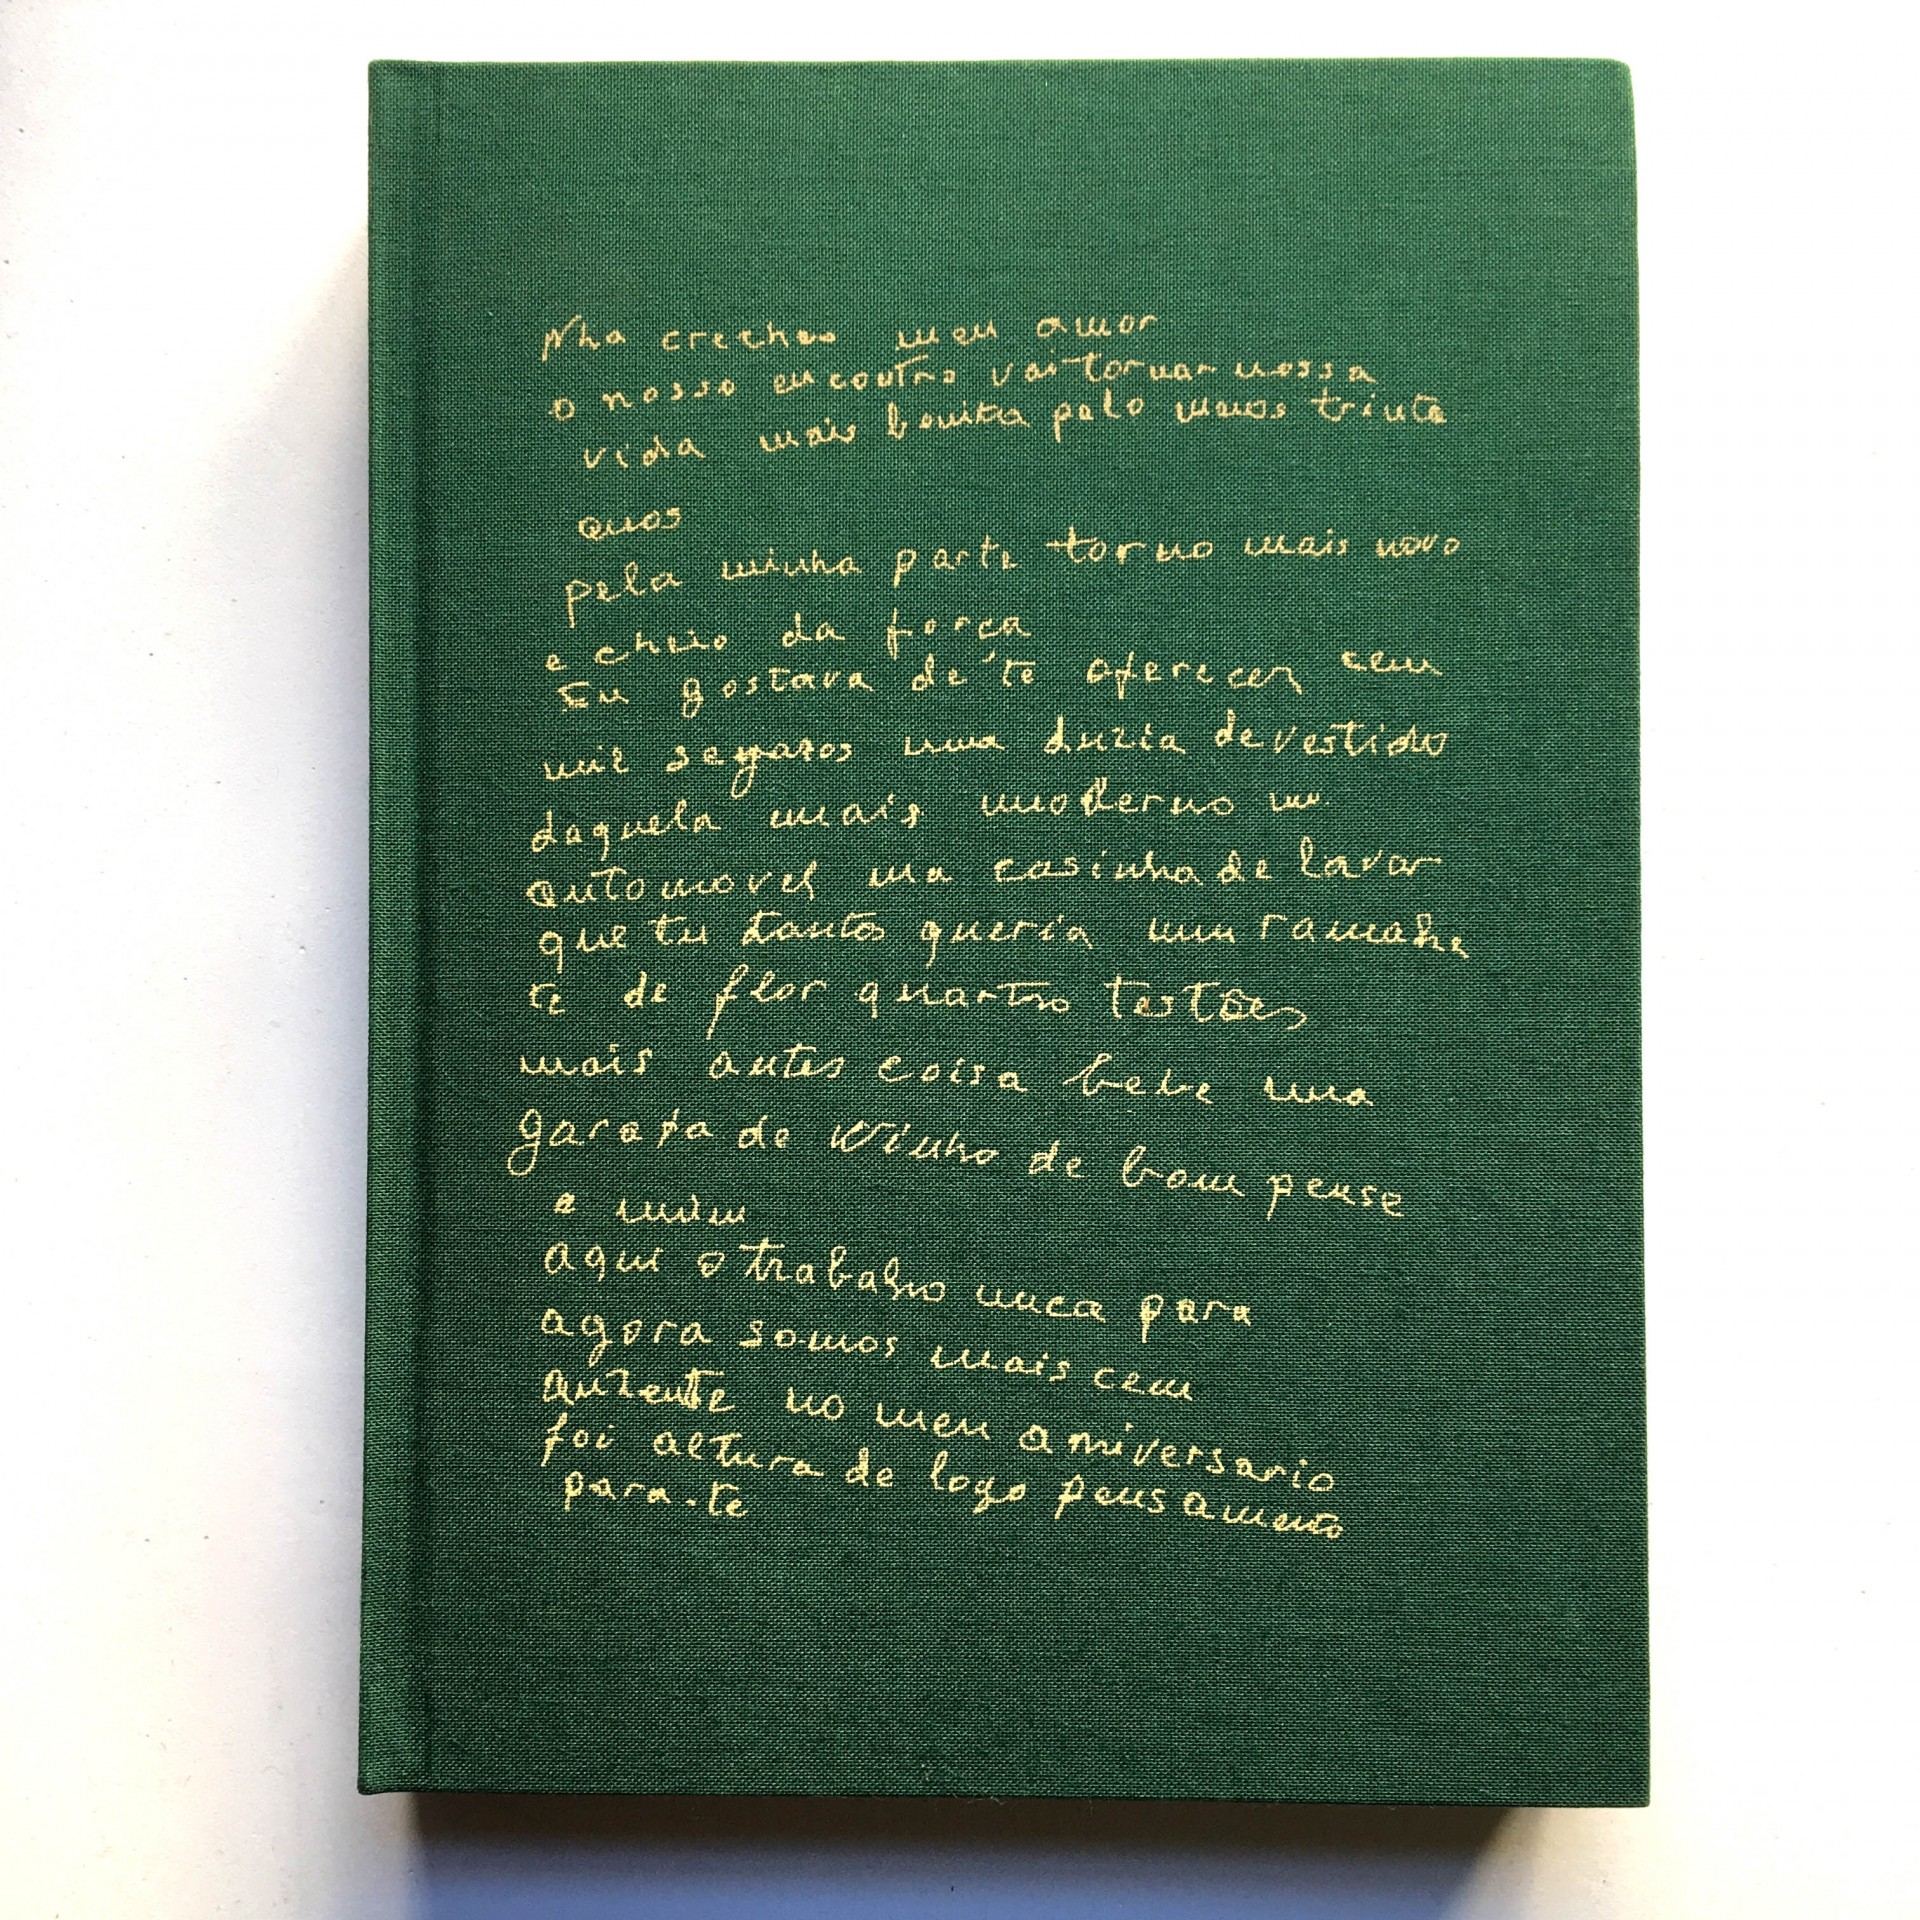 Nha crecheu meu amor
o nosso encontro vai tornar nossa
vida mais bonita pelo menos trinta
anos
pela minha parte torno mais novo
e cheio da força
Eu gostava de te oferecer cem
mil segaros uma duzia de vestido
daquela mais moderno um
automovel ma casinha de lavar
que tu tantos queria um ramalhe
te de flor quartro testões
mais antes coisa bebe uma
garafa de winho de bom pense
e mim
aqui o trabalho nuca para
agora somos mais cem
anzente no meu aniversario
foi altura de logo pensamento
para-te